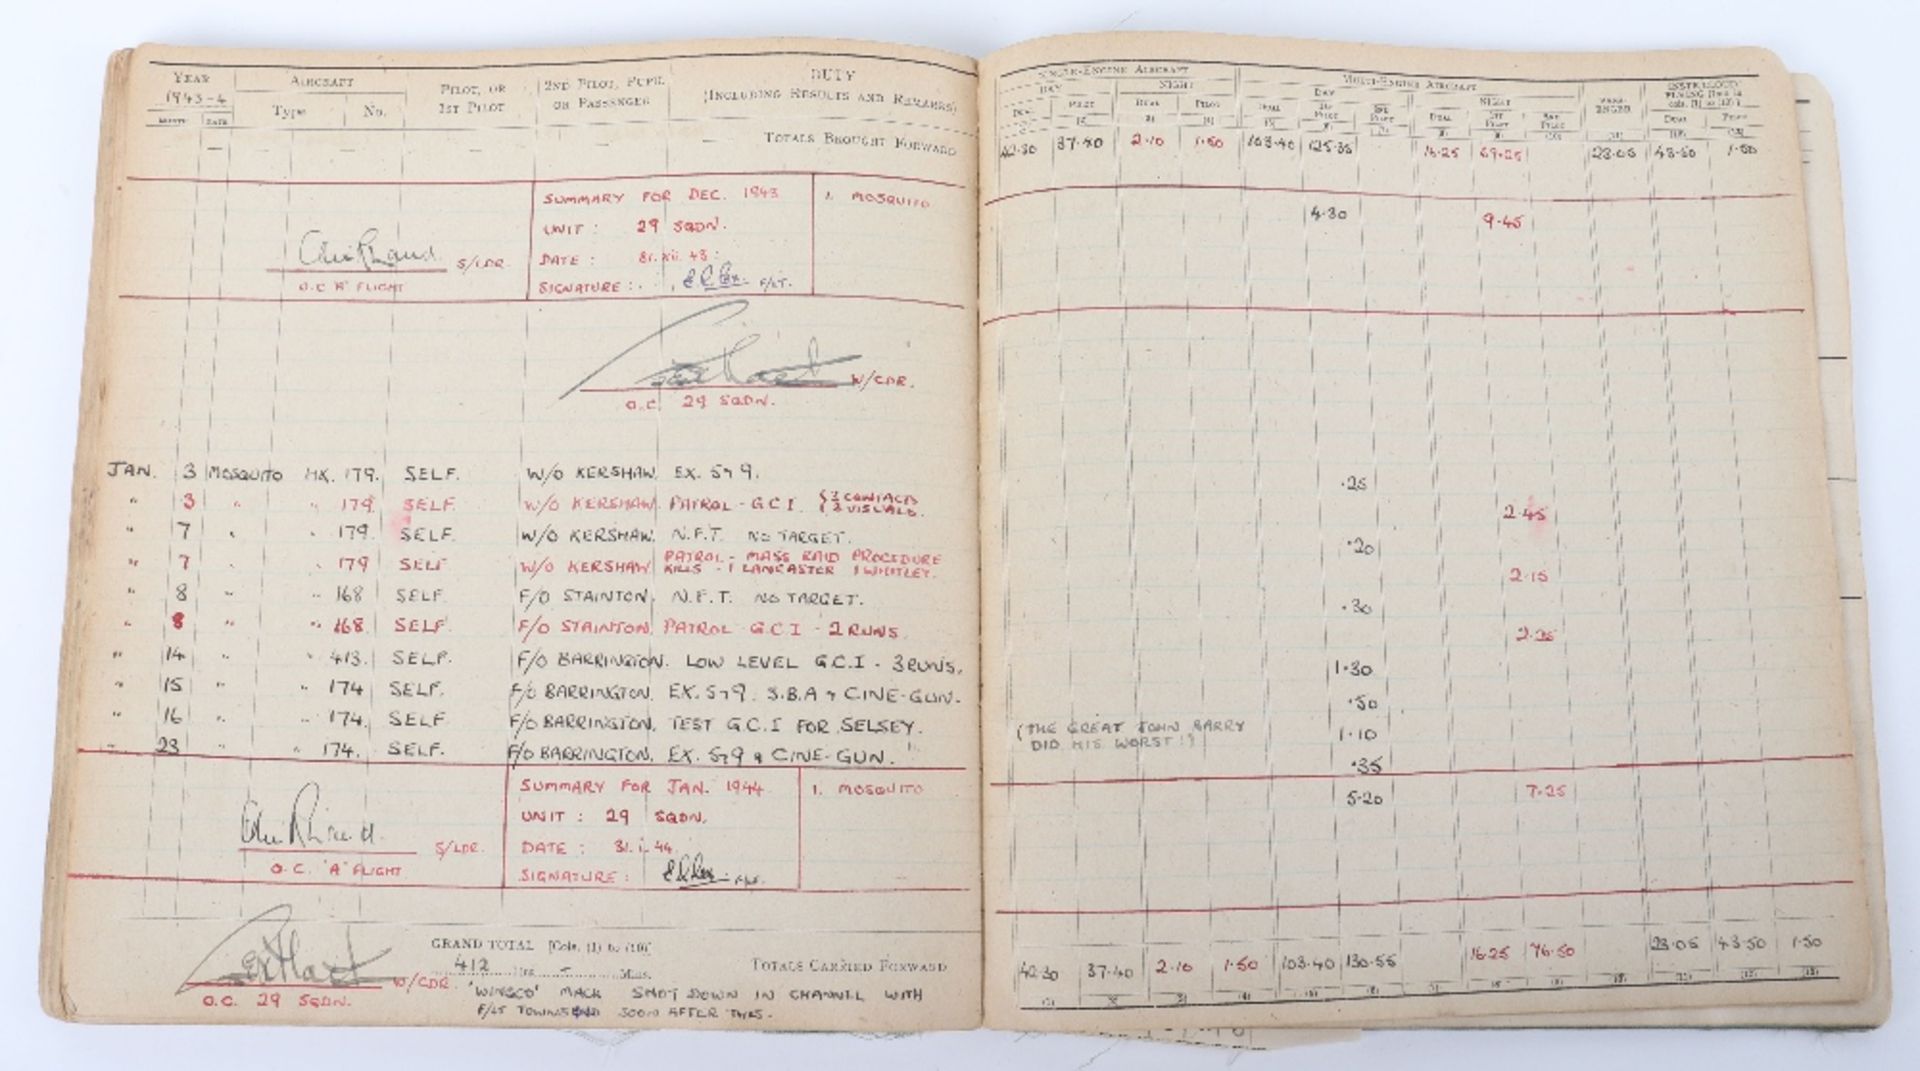 YEAR AIRCRAFT PILOT, OR 2ND PILOT, PUPIL DUTY
1943-4 Type No. 1ST PILOT OR PASSENGER (INCLUDING RESULTS AND REMARKS)
MONTH DATE
— — — — — — TOTALS BROUGHT FORWARD
SUMMARY FOR DEC. 1943 1. MOSQUITO
UNIT : 29 SQDN.
S/LDR. DATE : 31.XII.43.
O.C 'A' FLIGHT SIGNATURE : F/LT.
W/CDR.
O.C. 29 SQDN.
JAN. 3 MOSQUITO HK. 179. SELF. W/O KERSHAW EX. 5 & 9.
" 3 " " 179. SELF. W/O KERSHAW PATROL - G.C.I. { 3 CONTACTS
{ 2 VISUALS.
" 7 " " 179. SELF. W/O KERSHAW. N.F.T. NO TARGET.
" 7 " " 179 SELF W/O KERSHAW PATROL - MASS RAID PROCEDURE
KILLS - 1 LANCASTER 1 WHITLEY.
" 8 " " 168 SELF. F/O STAINTON. N.F.T. NO TARGET.
" 8 " " 168. SELF. F/O STAINTON. PATROL G.C.I - 2 RUNS.
" 14 " " 413. SELF. F/O BARRINGTON. LOW LEVEL G.C.I - 3 RUNS.
" 15 " " 174 SELF. F/O BARRINGTON. EX. 5 & 9. S.B.A & CINE-GUN.
" 16 " " 174. SELF. F/O BARRINGTON. TEST G.C.I FOR SELSEY.
" 23 " " 174. SELF. F/O BARRINGTON. EX. 5 & 9 & CINE-GUN.
SUMMARY FOR JAN. 1944. 1. MOSQUITO
UNIT : 29 SQDN.
S/LDR. DATE : 31.1.44.
O.C. 'A' FLIGHT SIGNATURE : F/LT.
GRAND TOTAL [Cols. (1) to (10)]
412 Hrs. - Mins. TOTALS CARRIED FORWARD
W/CDR. 'WINGCO' MACK SHOT DOWN IN CHANNEL WITH
O.C. 29 SQDN. F/LT TOWNSEND SOON AFTER THIS.
SINGLE-ENGINE AIRCRAFT MULTI-ENGINE AIRCRAFT PASS-ENGER INSTR/CLOUD FLYING [Incl. in cols. (1) to (10)]
DAY NIGHT DAY NIGHT
DUAL PILOT DUAL PILOT DUAL 1ST PILOT 2ND PILOT DUAL 1ST PILOT 2ND PILOT DUAL PILOT
42.30 37.40 2.10 1.50 103.40 125.35 16.25 69.25 23.05 43.50 1.50
4.30 9.45
.25
2.45
.20
2.15
.30
1.30
.50
(THE GREAT JOHN BARRY
DID HIS WORST!) 1.10
.35
5.20 7.25
42.30 37.40 2.10 1.50 103.40 130.55 16.25 76.50 23.05 43.50 1.50